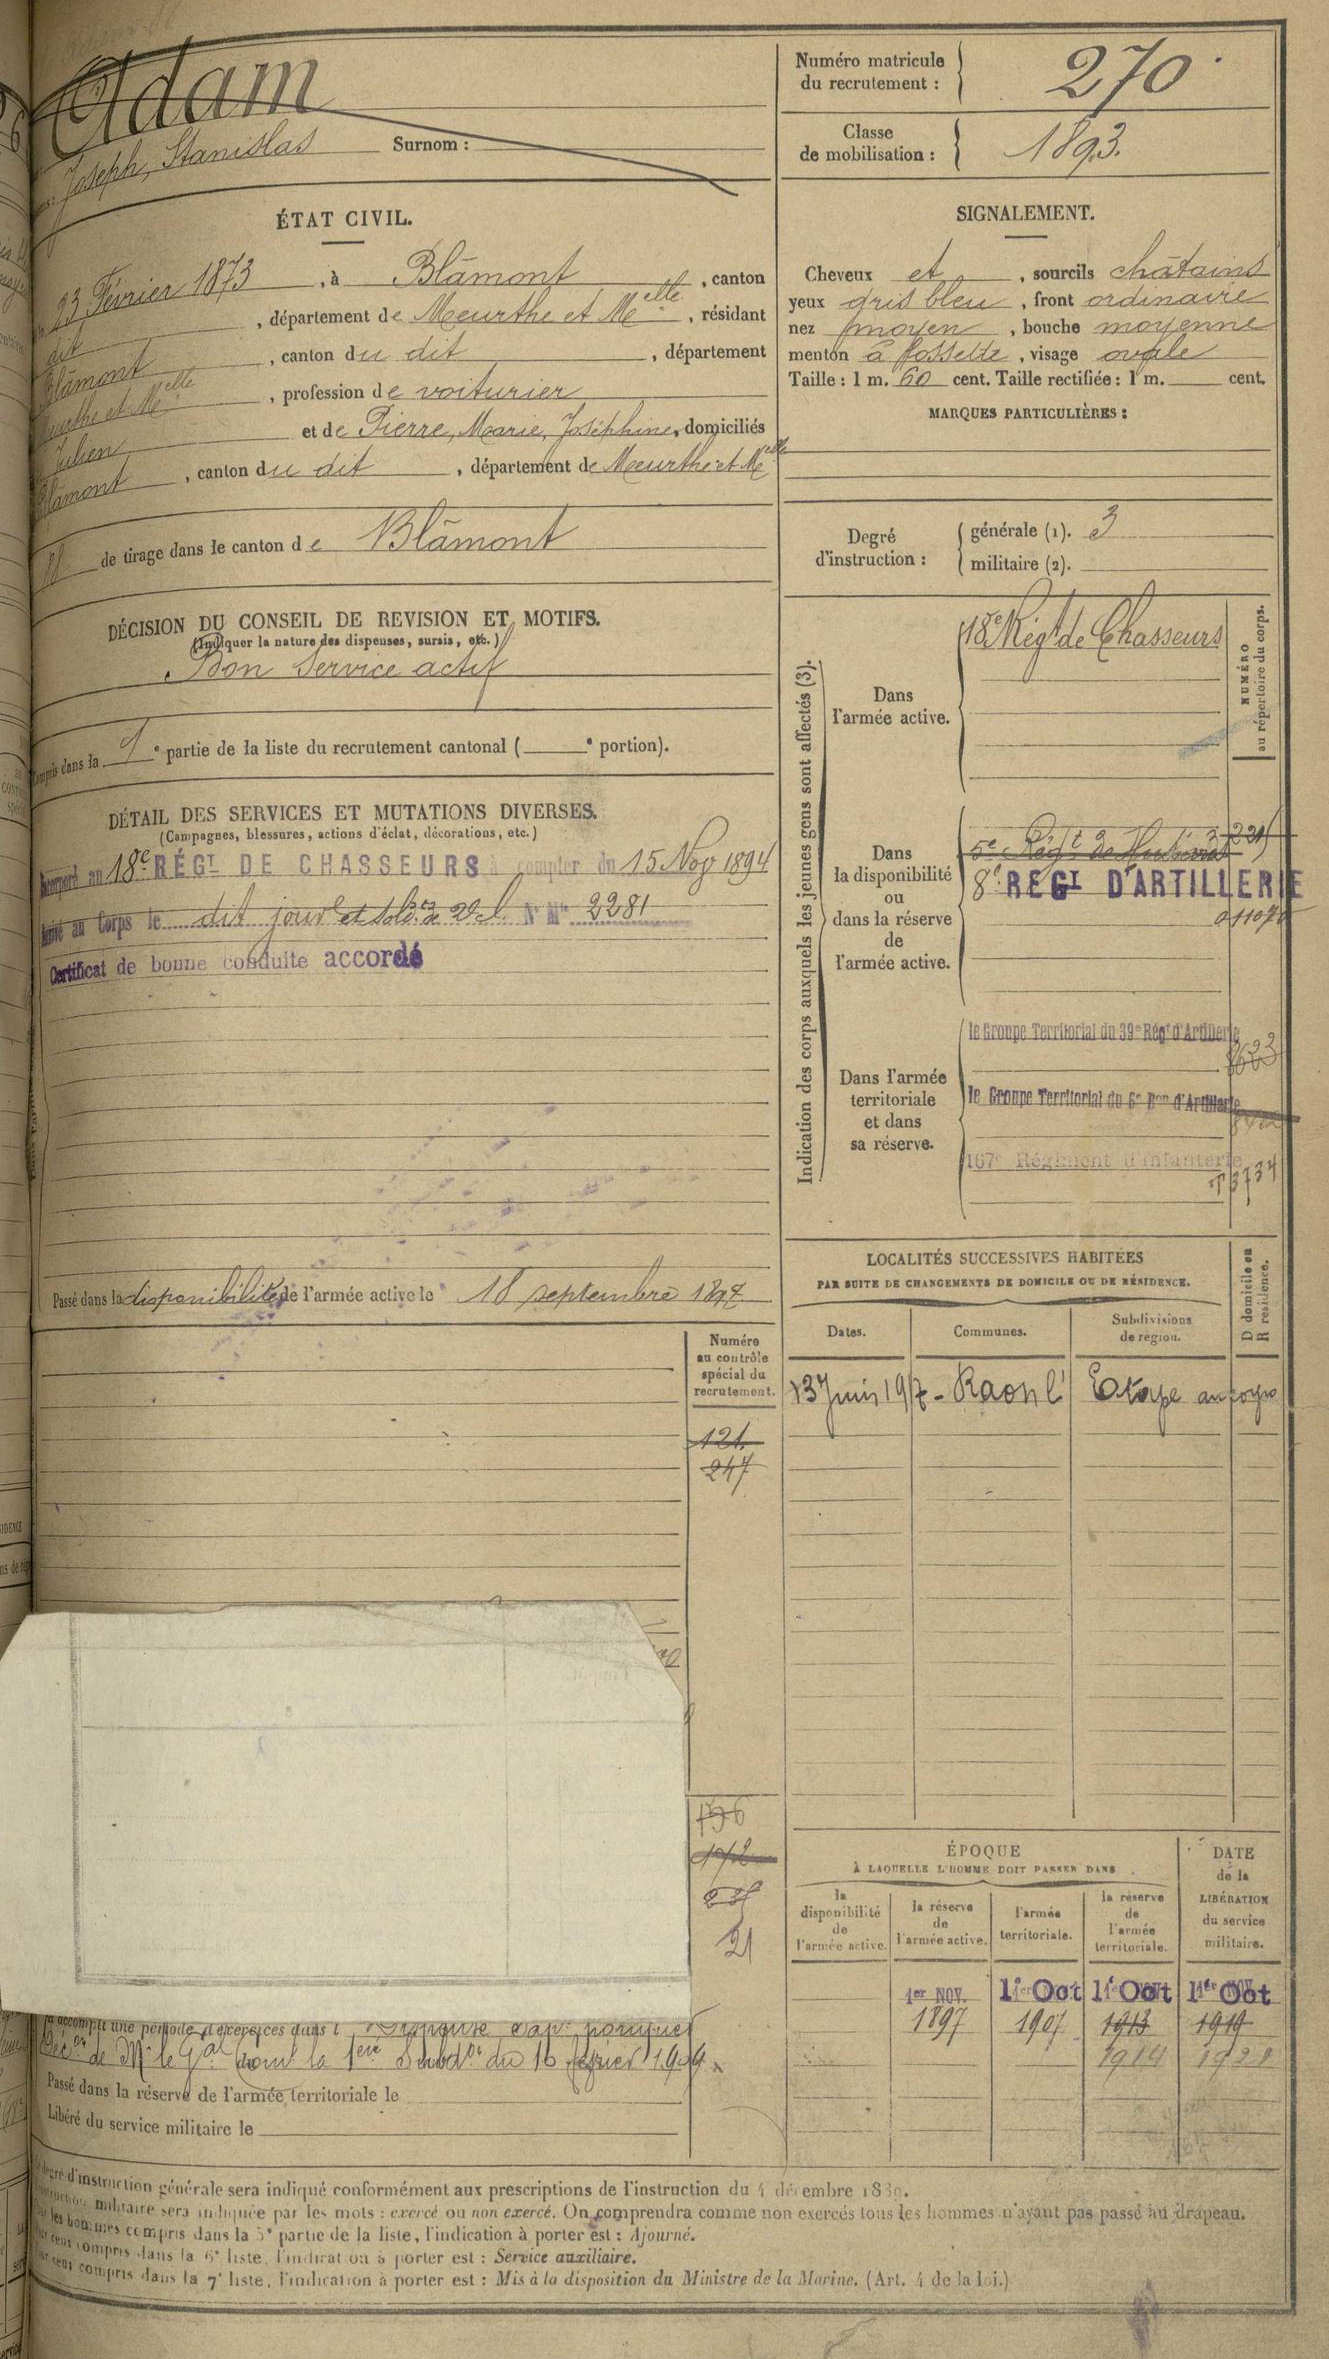 Adam
Joseph, Stanislas Surnom :
Numéro matricule
du recrutement : 270
Classe
de mobilisation : 1893.
ÉTAT CIVIL.
23 Février 1873, à Blâmont, canton
dit, département de Meurthe et Melle, résidant
Blâmont, canton du dit, département
Meurthe et Melle, profession de voiturier
Julien et de Pierre, Marie, Joséphine, domiciliés
Blâmont, canton du dit, département de Meurthe et Melle
de tirage dans le canton de Blâmont
DÉCISION DU CONSEIL DE REVISION ET MOTIFS.
(Indiquer la nature des dispenses, sursis, etc.)
Bon Service actif
Compris dans la 1e partie de la liste du recrutement cantonal (e portion).
DÉTAIL DES SERVICES ET MUTATIONS DIVERSES.
(Campagnes, blessures, actions d'éclat, décorations, etc.)
Incorporé au 18e RÉGT DE CHASSEURS à compter du 15 Nov 1894
Arrivé au Corps le dit jour et sold. de 2e cl. No Mle 2281
Certificat de bonne conduite accordé
Passé dans la disponibilité de l'armée active le 18 septembre 1897
Numéro
au contrôle
spécial du
recrutement.
121
247
196
21
a accompli une période d'exercices dans l
de Mr le Gal Comt la 1ère Subdon du 16 février 1909
Passé dans la réserve de l'armée territoriale le
Libéré du service militaire le
SIGNALEMENT.
Cheveux et, sourcils châtains
yeux gris bleu, front ordinaire
nez moyen, bouche moyenne
menton à fossette, visage ovale
Taille : 1 m. 60 cent. Taille rectifiée : 1 m. cent.
MARQUES PARTICULIÈRES :
Degré
d'instruction :
générale (1). 3
militaire (2).
Indication des corps auxquels les jeunes gens sont affectés (3).
NUMÉRO
au répertoire du corps.
Dans
l'armée active.
18e Régt de Chasseurs
Dans
la disponibilité
ou
dans la réserve
de
l'armée active.
5e Régt de
8e REGT D'ARTILLERIE
Dans l'armée
territoriale
et dans
sa réserve.
le Groupe Territorial du 39e Régt d'Artillerie
le Groupe Territorial du 6e Bon d'Artillerie
167e Régiment d'Infanterie
T 3734
LOCALITÉS SUCCESSIVES HABITÉES
PAR SUITE DE CHANGEMENTS DE DOMICILE OU DE RÉSIDENCE.
D domicile ou
R résidence.
Dates. Communes. Subdivisions
de région.
13 Juin 1917 - Raon l' Etape au corps
ÉPOQUE
À LAQUELLE L'HOMME DOIT PASSER DANS
DATE
de la
LIBÉRATION
du service
militaire.
la
disponibilité
de
l'armée active.
la réserve
de
l'armée active.
l'armée
territoriale.
la réserve
de
l'armée
territoriale.
1er NOV. 1er Oct 1er Oct 1er Oct
1897 1907 1913 1919
1914
degré d'instruction générale sera indiqué conformément aux prescriptions de l'instruction du 4 décembre 1889.
militaire sera indiquée par les mots : exercé ou non exercé. On comprendra comme non exercés tous les hommes n'ayant pas passé au drapeau.
les hommes compris dans la 5e partie de la liste, l'indication à porter est : Ajourné.
compris dans la 6e liste, l'indication à porter est : Service auxiliaire.
compris dans la 7e liste, l'indication à porter est : Mis à la disposition du Ministre de la Marine. (Art. 4 de la loi.)